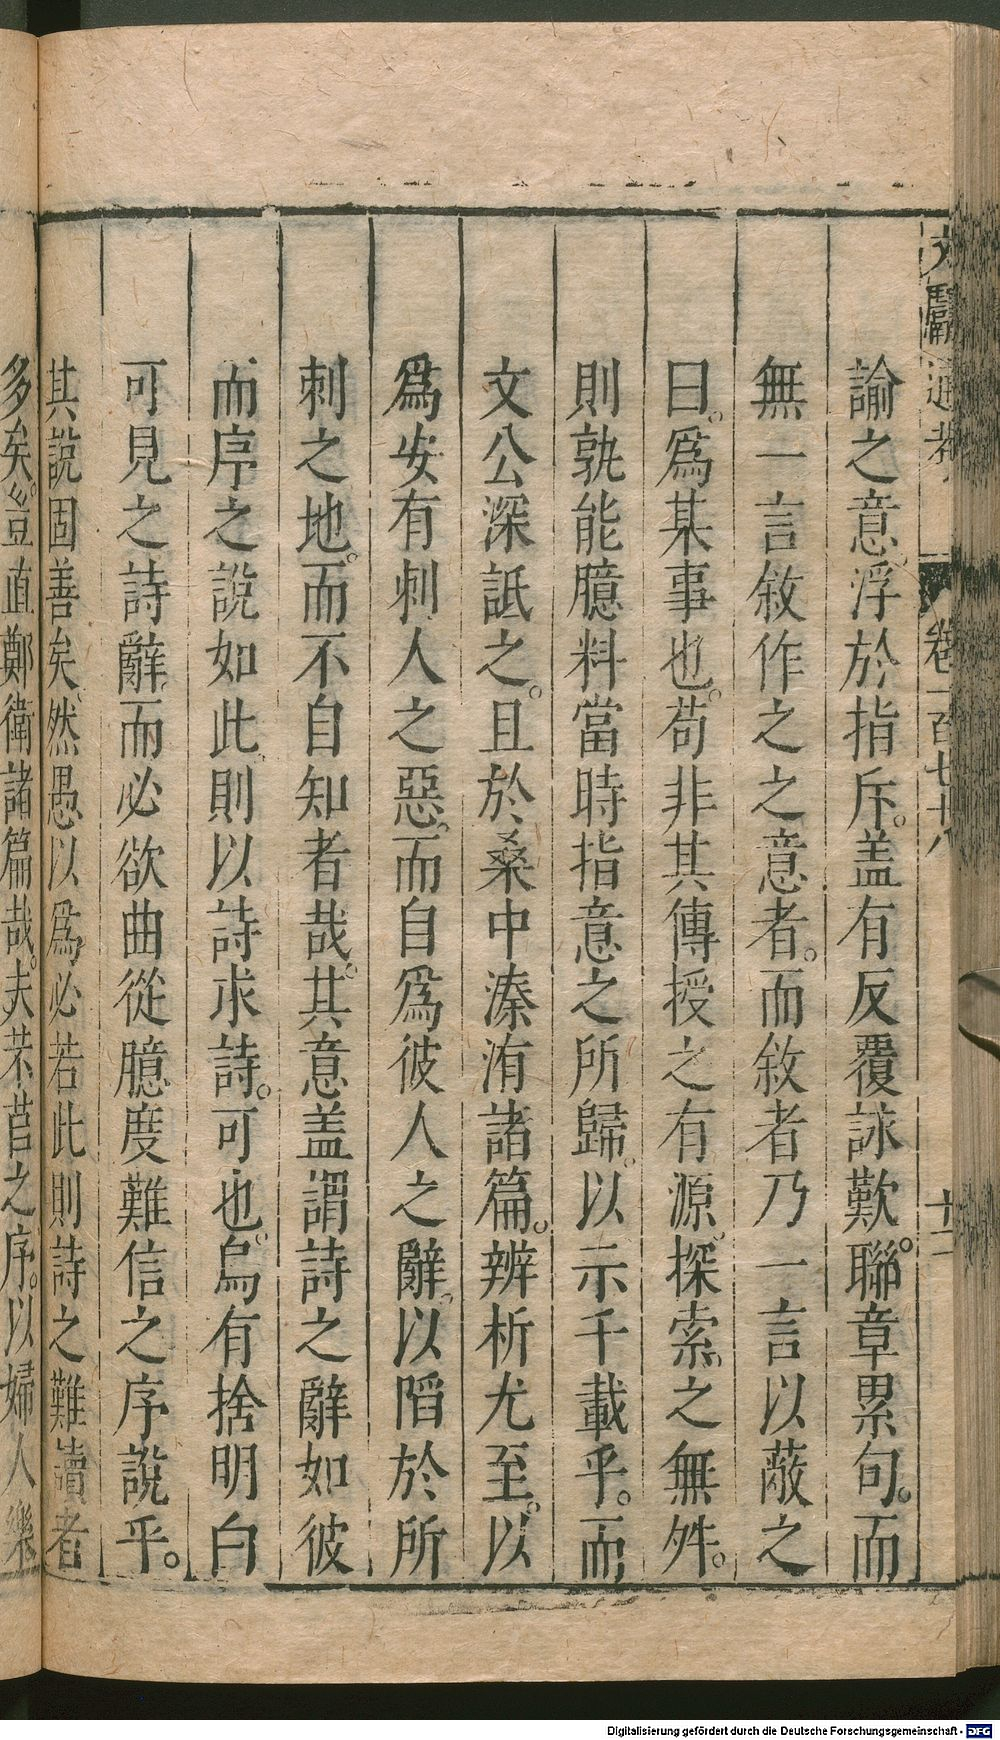 文獻通考 卷一百七十八 十二
諭之意浮於指斥。盖有反覆詠歎。聯章累句。而
無一言敘作之之意者。而敘者乃一言以蔽之
曰。爲某事也。苟非其傳授之有源。探索之無舛。
則孰能臆料當時指意之所歸。以示千載乎。而
文公深詆之。且於桑中溱洧諸篇。辨析尤至。以
爲安有刺人之惡。而自爲彼人之辭。以陷於所
刺之地。而不自知者哉。其意盖謂詩之辭如彼
而序之說如此。則以詩求詩。可也。烏有捨明白
可見之詩辭。而必欲曲從臆度難信之序說乎。
其說固善矣然愚以爲必若此則詩之難讀者
多矣。豈直鄭衛諸篇哉。夫芣苢之序。以婦人樂
Digitalisierung gefördert durch die Deutsche Forschungsgemeinschaft - DFG